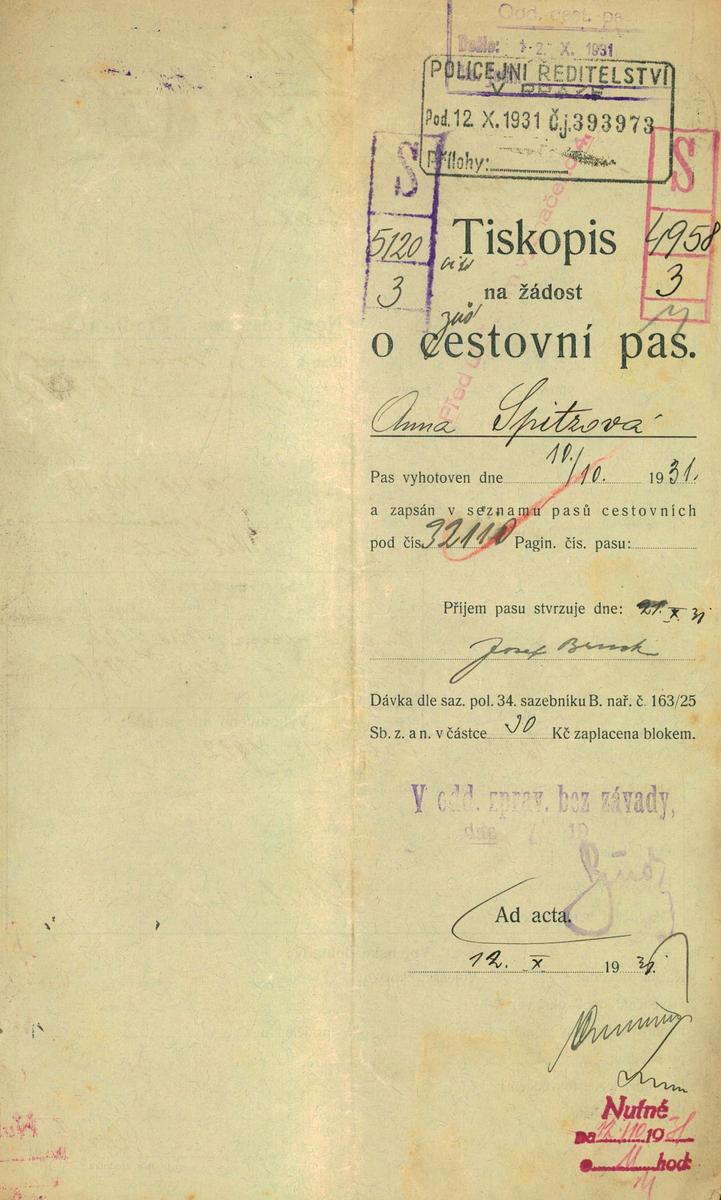 Odd. cest. pa
Došlo: 12. X. 1931
POLICEJNÍ ŘEDITELSTVÍ
V PRAZE
Pod. 12. X. 1931 Č.j. 393973
Přílohy:
S
5120
3
S
4958
3
Tiskopis
na žádost
o cestovní pas.
Anna Spitzová
Pas vyhotoven dne 10./10. 1931.
a zapsán v seznamu pasů cestovních
pod čís. 32110 Pagin. čís. pasu:
Příjem pasu stvrzuje dne: 21. X 31
Josef
Dávka dle saz. pol. 34. sazebníku B. nař. č. 163/25
Sb. z. a n. v částce 30 Kč zaplacena blokem.
V odd. zprav. bez závady,
dne 19
Ad acta.
12. X 1931.
Nutné
na 12./10 1931
o 11 hod.